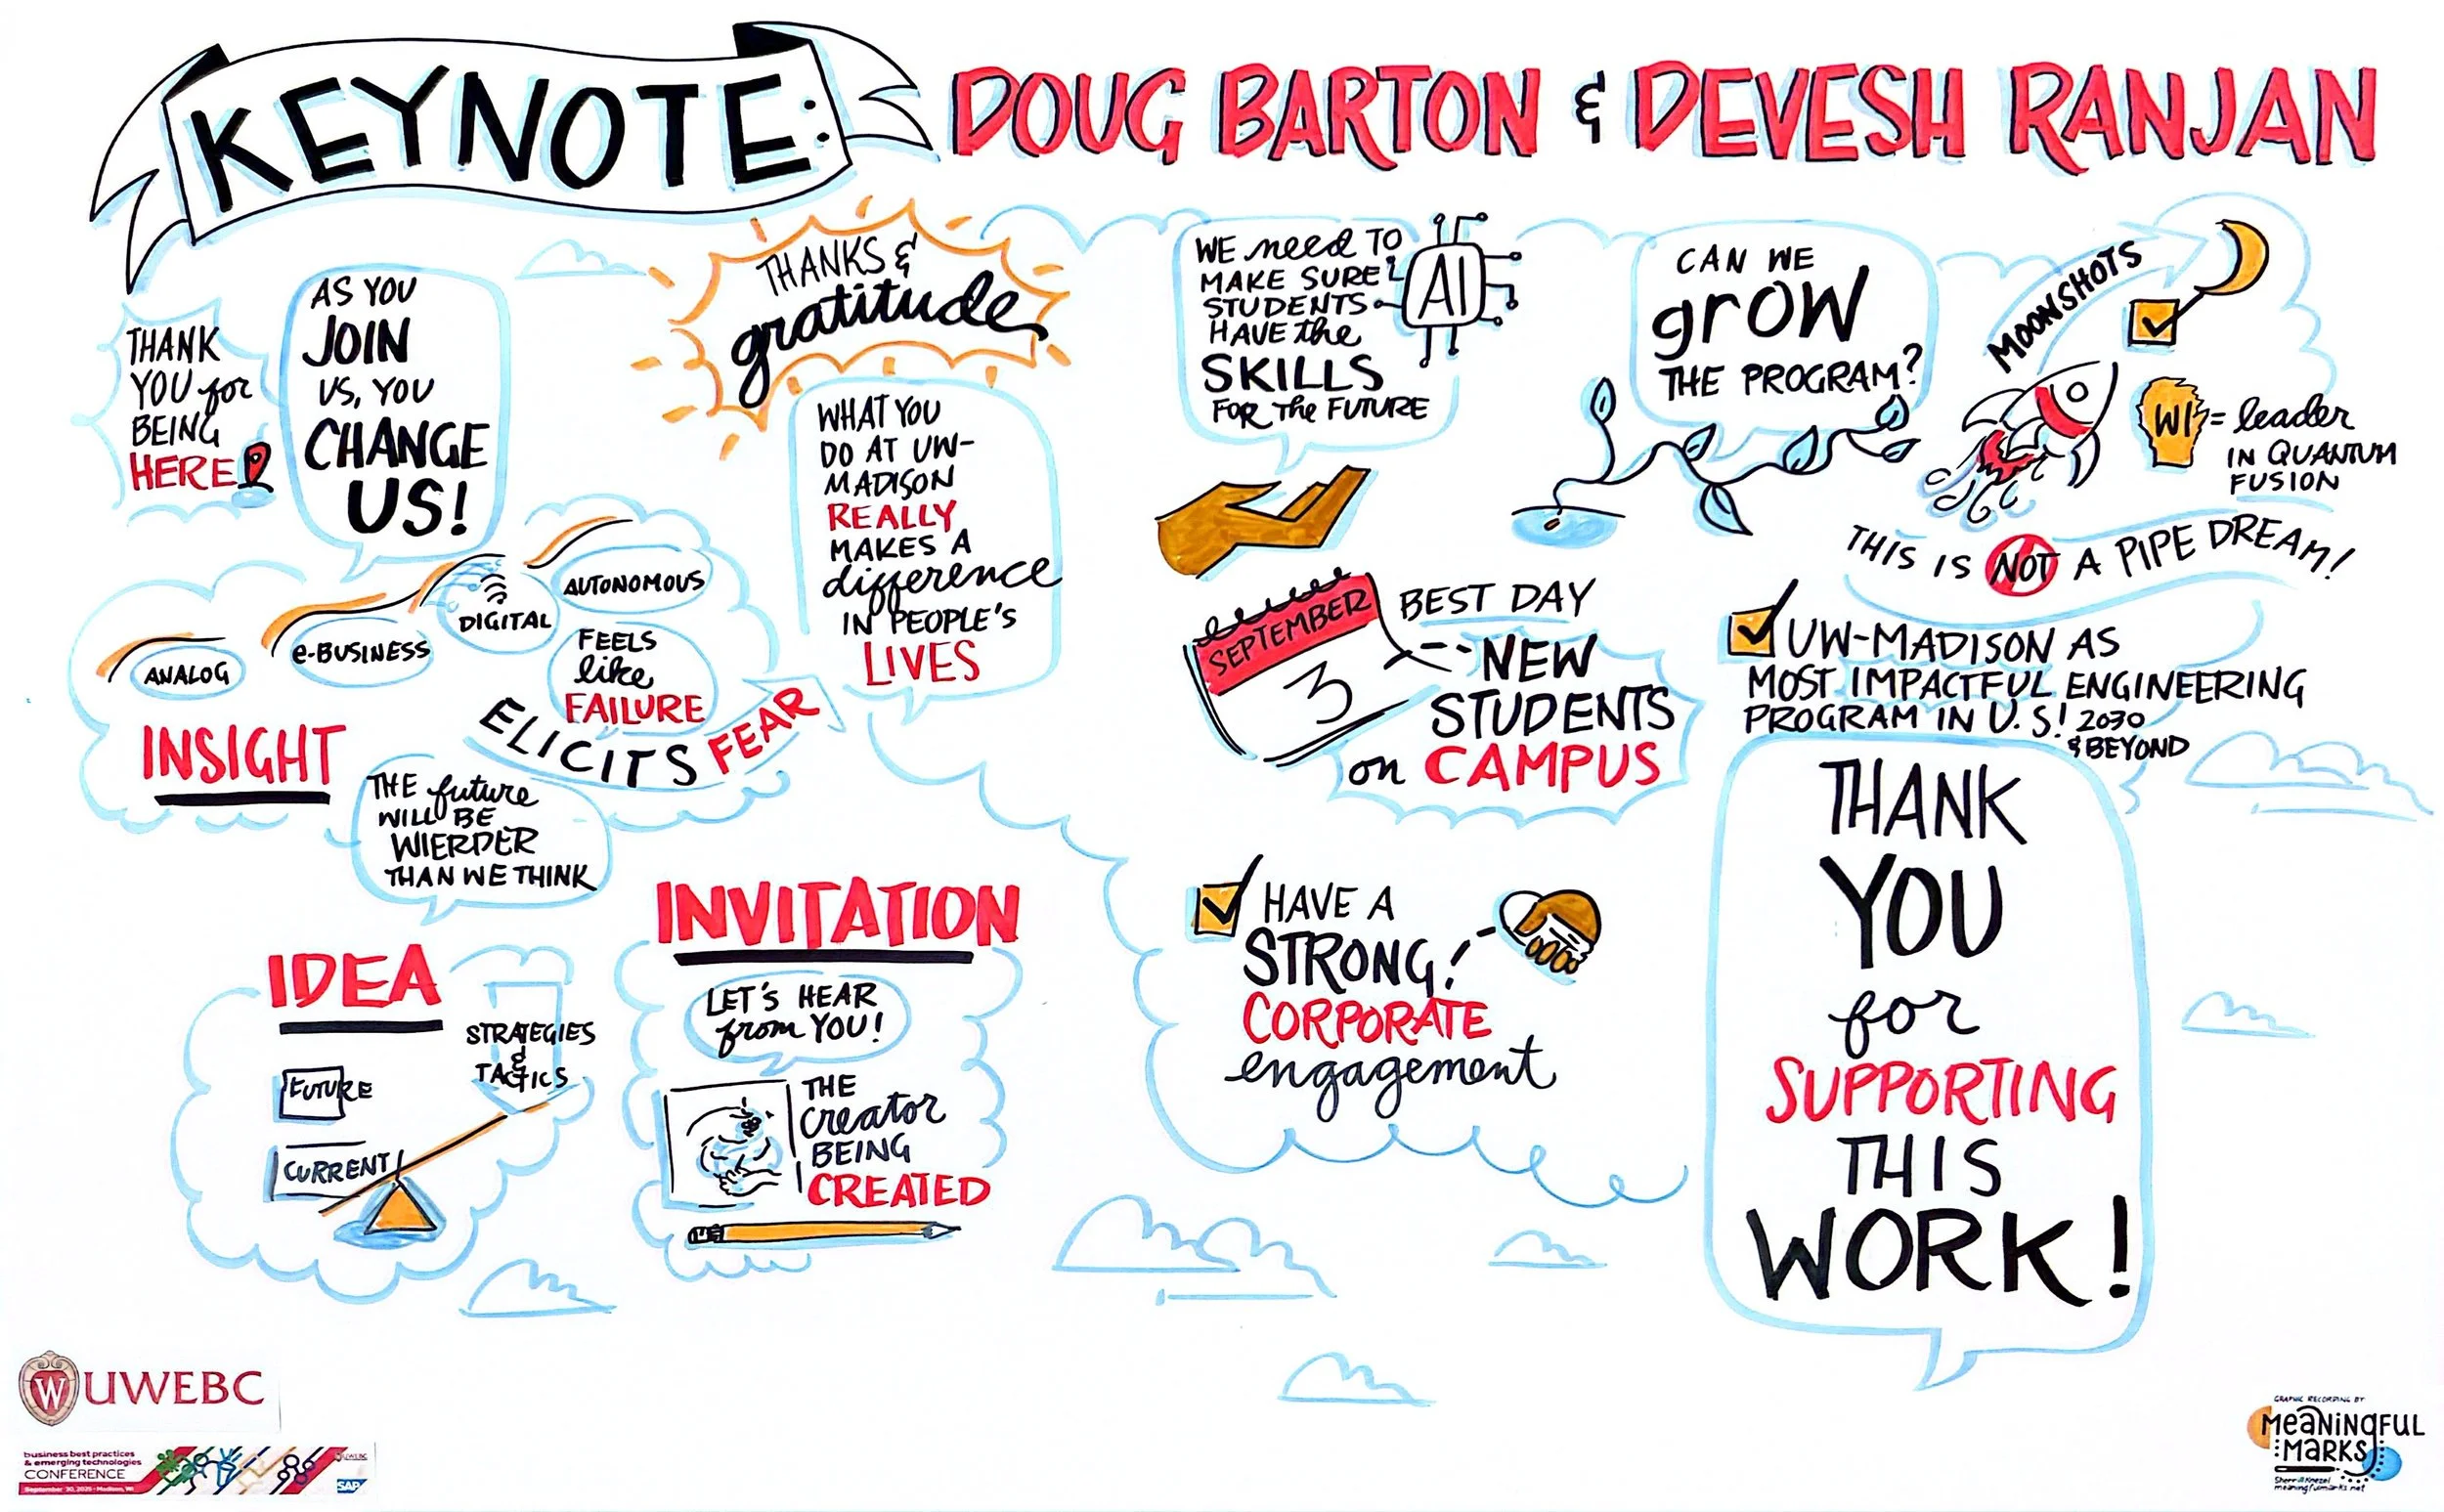 KEYNOTE:
DOUG BARTON & DEVESH RANJAN
THANK
YOU for
BEING
HERE
AS YOU
JOIN
US, YOU
CHANGE
US!
THANKS &
gratitude
WHAT YOU
DO AT UW-
MADISON
REALLY
MAKES A
difference
IN PEOPLE'S
LIVES
ANALOG
e-BUSINESS
DIGITAL
AUTONOMOUS
FEELS
like
FAILURE
ELICITS FEAR
INSIGHT
THE future
WILL BE
WIERDER
THAN WE THINK
IDEA
FUTURE
CURRENT
STRATEGIES
&
TACTICS
INVITATION
LET'S HEAR
from YOU!
THE
Creator
BEING
CREATED
WE need TO
MAKE SURE
STUDENTS
HAVE the
SKILLS
FOR the FUTURE
AI
CAN WE
grow
THE PROGRAM?
MOONSHOTS
WI = leader
IN QUANTUM
FUSION
THIS IS NOT A PIPE DREAM!
SEPTEMBER
3
BEST DAY
NEW
STUDENTS
on CAMPUS
UW-MADISON AS
MOST IMPACTFUL ENGINEERING
PROGRAM IN U.S! 2030
& BEYOND
HAVE A
STRONG!
CORPORATE
engagement
THANK
YOU
for
SUPPORTING
THIS
WORK!
W UWEBC
business best practices
& emerging technologies
CONFERENCE
September 30, 2025 • Madison, WI
UWEBC
SAP
GRAPHIC RECORDING BY
MEANINGFUL
MARKS
Sherrill Knezel
meaningfulmarks.net